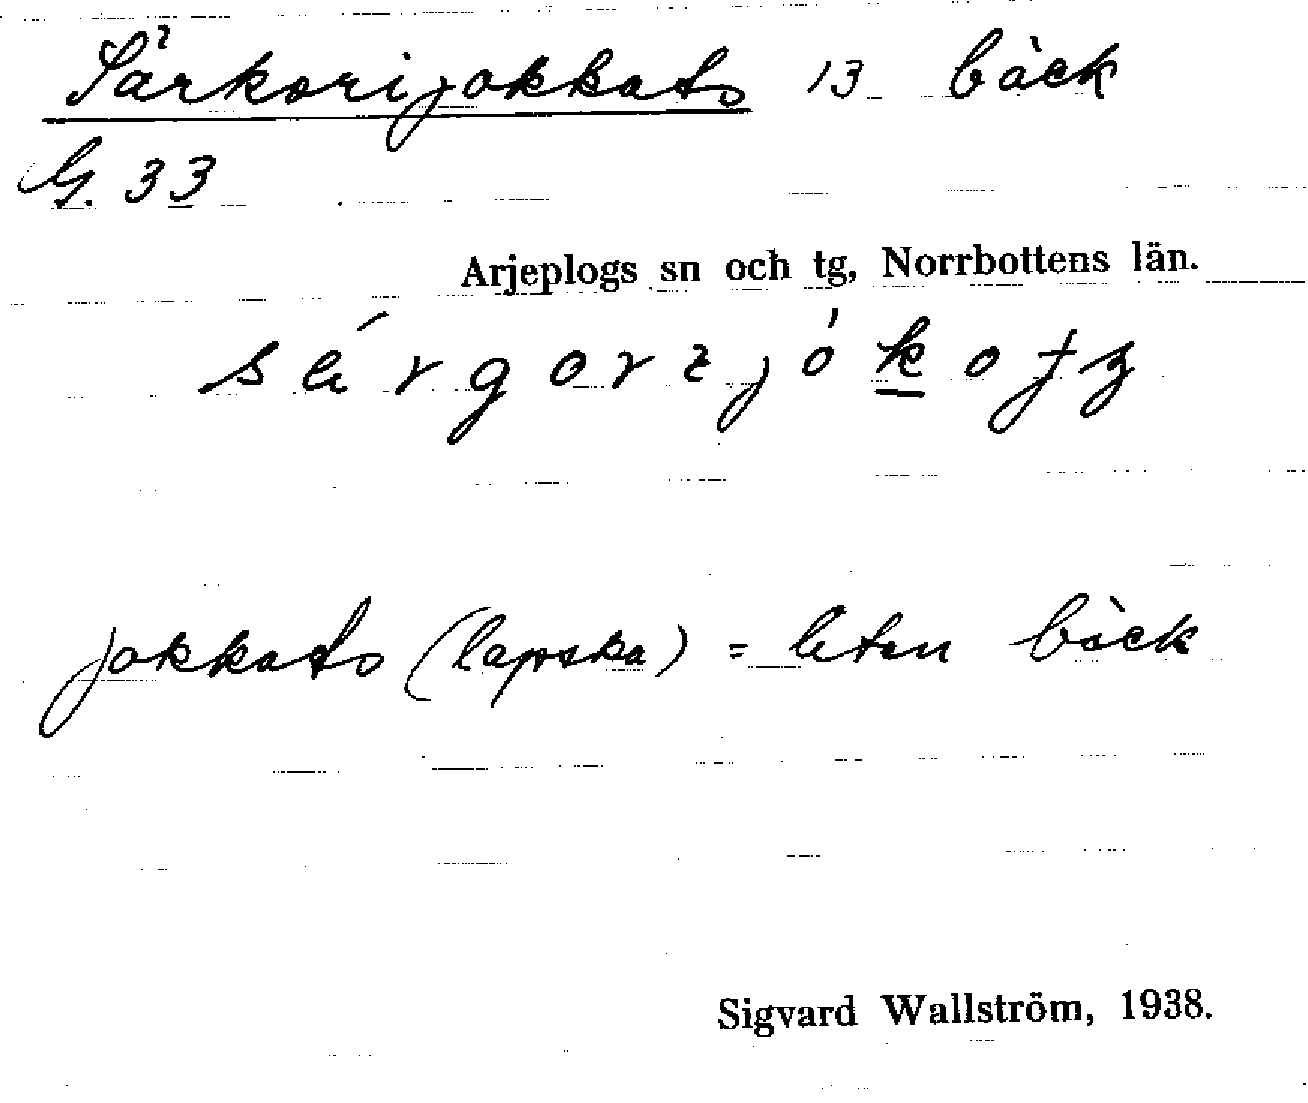 Särkarijokkats 13 bäck
G. 33
Arjeplogs sn och tg, Norrbottens län.
jokkats (lapska) = liten bäck
Sigvard Wallström, 1938.